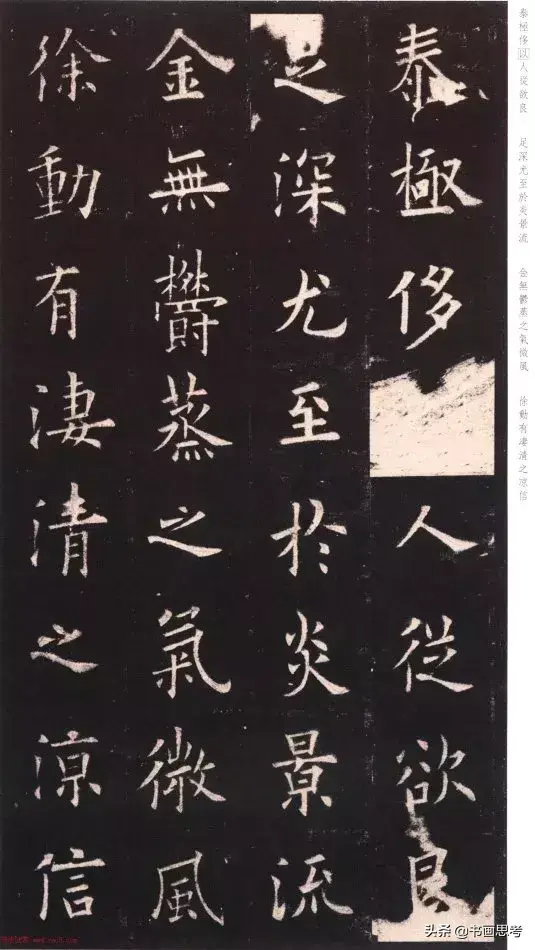 泰極侈人從欲良
足深尤至於炎景流
金無鬱蒸之氣微風
徐動有淒清之涼信
泰極侈以人從欲良
足深尤至於炎景流
金無鬱蒸之氣微風
徐動有凄清之涼信
头条 @书画思考